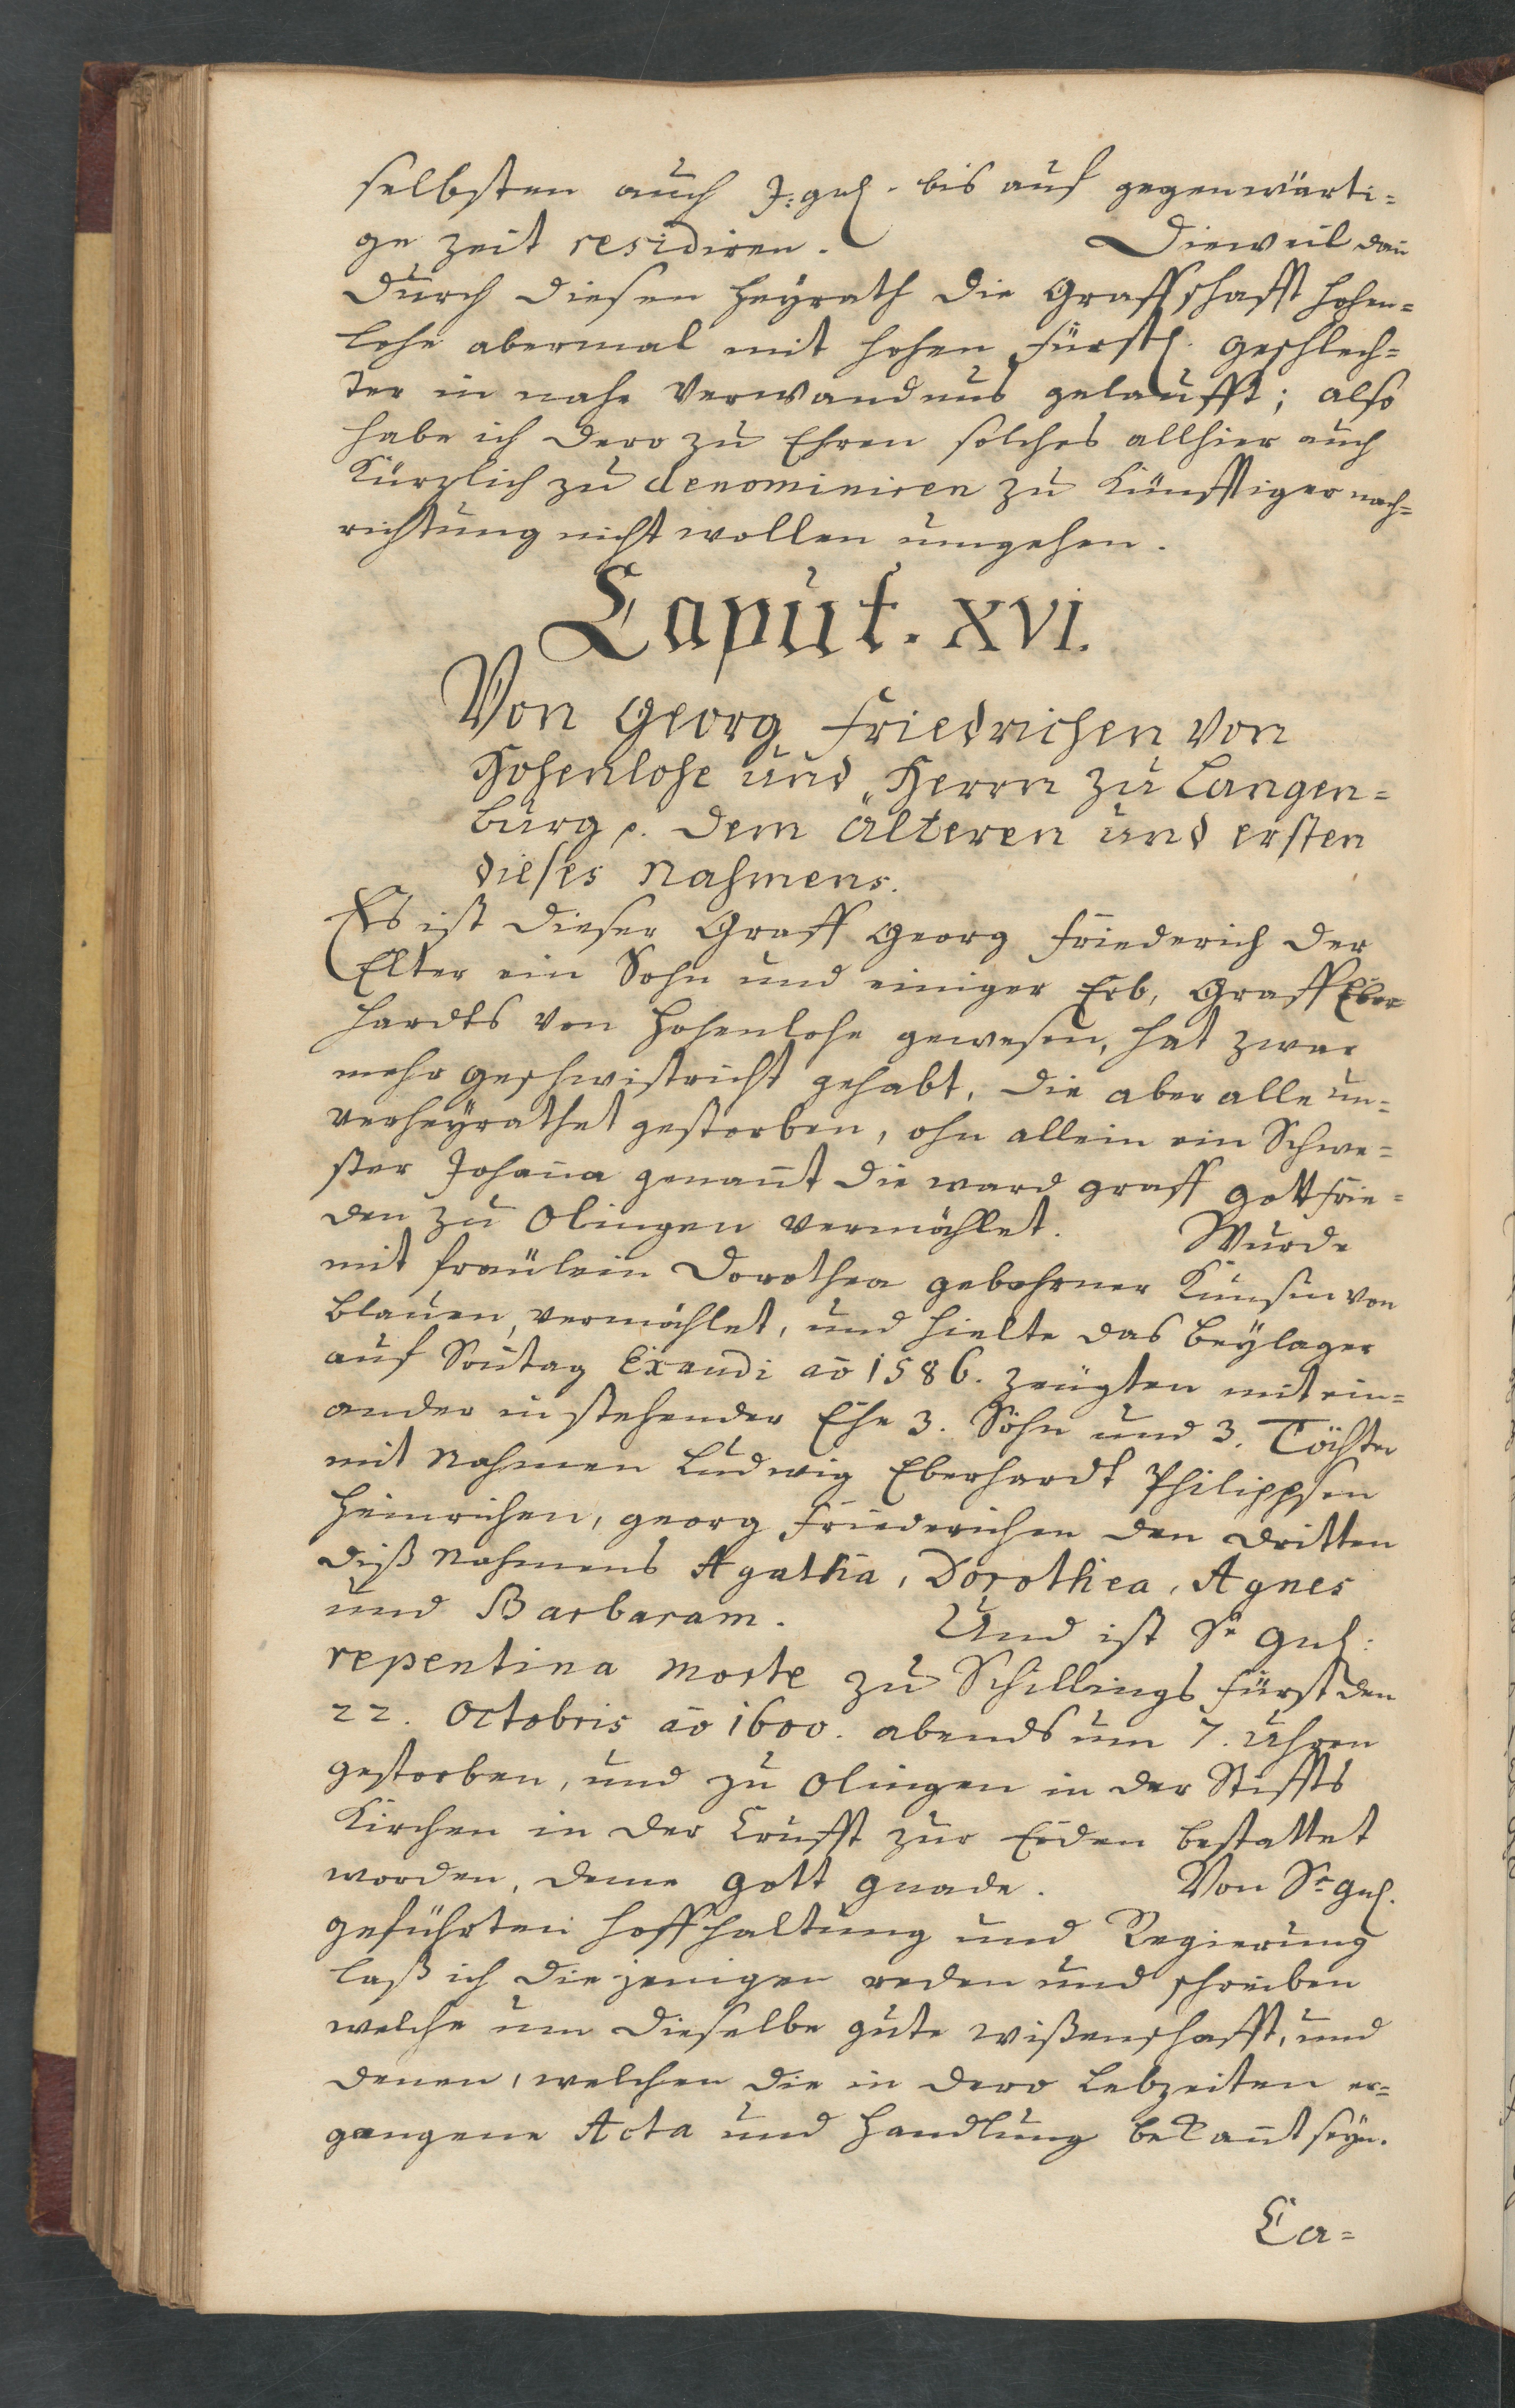 selbsten auch J: gnl. bis auf gegenwärti=
ge zeit residiren. Dieweil dañ
durch diesen Heyrath die Graffschafft Hohen=
lohe abermal mit hohen Fürstl. geschlech=
ter in nahe Verwandnus gelaufft; also
habe ich dero zu Ehren solches allhier auch
Kürzlich zu denominiren zu Künfftiger nach=
richtung nicht wollen umgehen.
Caput. XVI.
Von Georg Friedrichen von
Hohenlohe und Herrn zu Langen=
burg p. dem Älteren und ersten
dieses Nahmens.
Es ist dieser Graff Georg Friederich der
Elter ein Sohn und einiger Erb, Graff Eber
hardts von Hohenlohe gewesen, hat zwar
mehr geschwistricht gehabt, die aber alle un=
verheyrathet gestorben, ohn allein ein Schwe=
ster Johaña genañt die ward graff Gottfrie=
den zu Olingen vermählet. Wurde
mit fräulein Dorothea gebohrner Künsin von
Blauen, vermählet, und hielte das Beylager
auf Soñtag Exaudi aõ 1586. zeugten mit ein=
ander in stehender Ehe 3. Söhn und 3. Töchter
mit Nahmen Ludwig Eberhardt Philippsen
Heinrichen, Georg Friederichen den dritten
diß Nahmens Agatha, Dorothea, Agnes
und Barbaram. Und ist Sr gnl:
repentina morte zu Schillings Fürst den
22. Octobris aõ 1600. abends um 7. Uhren
gestorben, und zu Olingen in der Stiffts
Kirchen in der Crufft zur Erden bestattet
worden, deme Gott gnade. Von Sr gnl.
geführten Hoffhaltung und Regierung
laß ich die jenigen reden und schreiben
welche um dieselbe gute wißenschafft, und
denen, welchen die in dero Lebzeiten er=
gangene Acta und Handlung bekañt seyn.
Ca=